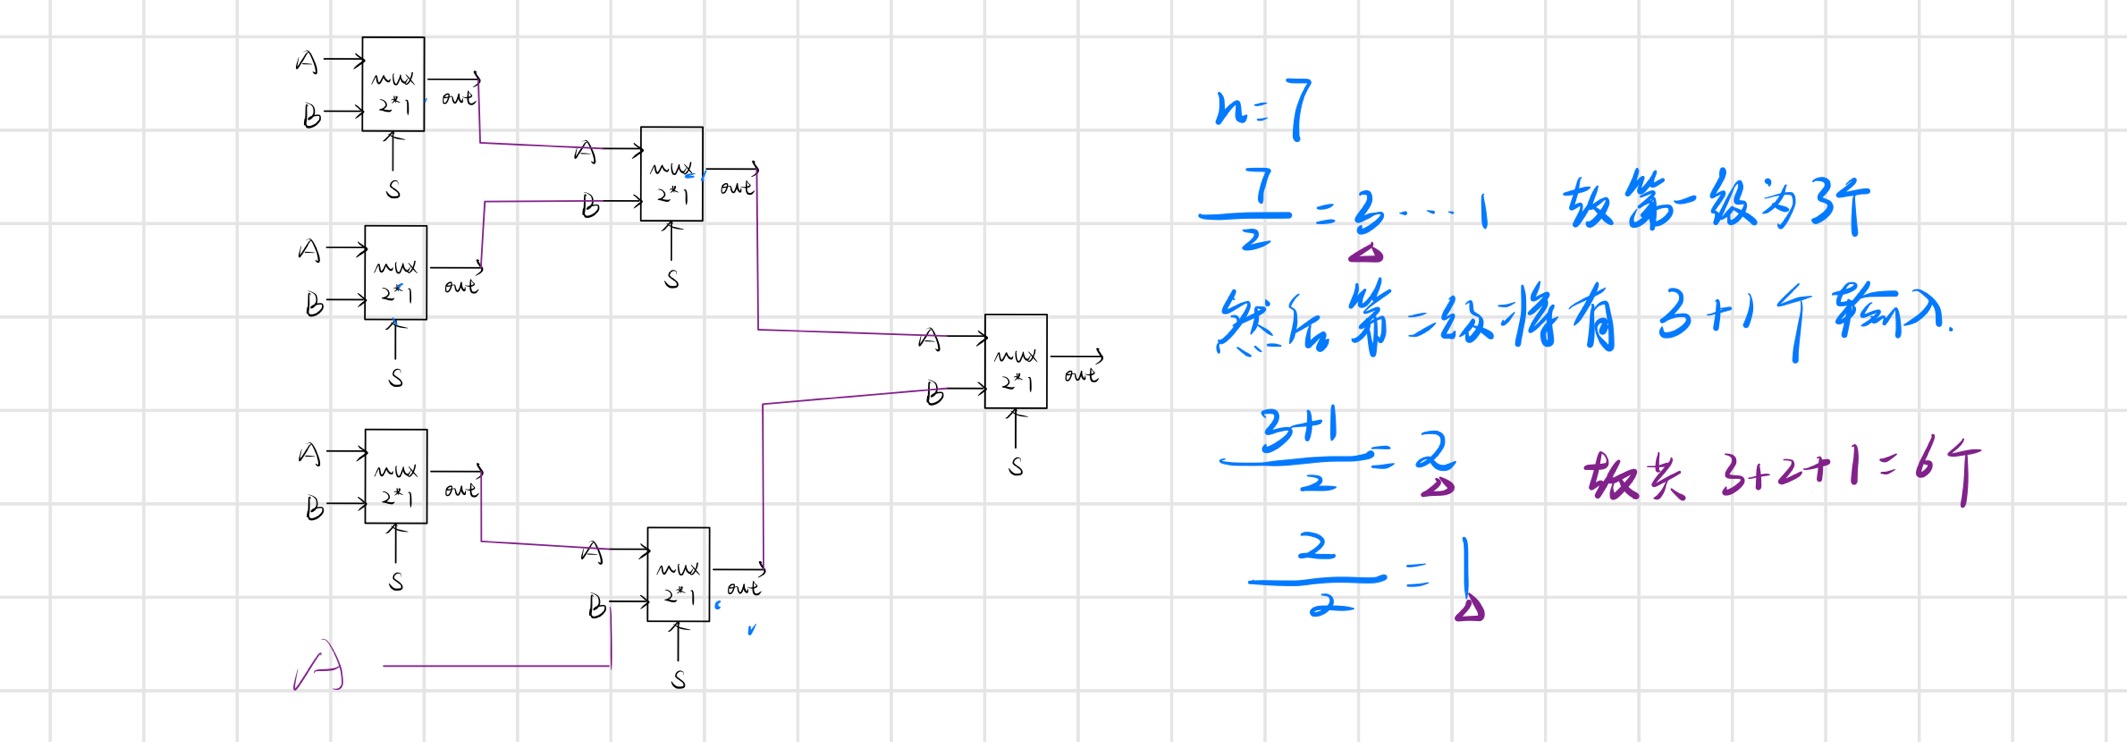 A
B
mux
2*1
out
S
A
B
mux
2*1
out
S
A
B
mux
2*1
out
S
A
A
B
mux
2*1
out
S
A
B
mux
2*1
out
S
A
B
mux
2*1
out
S
n=7
7/2 = 3 ··· 1 故第一级为3个
然后第二级将有 3+1个输入.
3+1/2 = 2 故共 3+2+1=6个
2/2 = 1